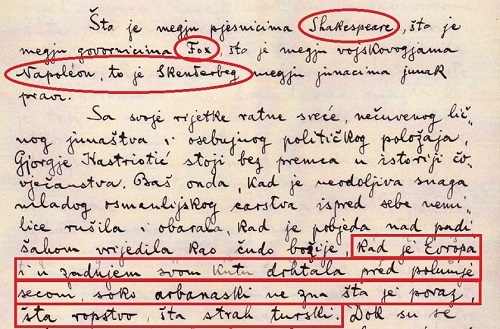 Šta je megju pjesnicima Shakespeare, šta je
megju govornicima Fox, šta je megju vojskovogjama
Napoléon, to je Skenterbeg megju junacima junak
pravi.
Sa svoje rijetke ratne sreće, nečuvenog lič-
nog junaštva i osebujnog političkog položaja,
Gjorgje Kastriotić stoji bez premca u istoriji čo-
vječanstva. Baš onda, kad je neodoljiva snaga
mladog osmanlijskog carstva ispred sebe nemi-
lice rušila i obarala, kad je pobjeda nad padi
šahom vrijedila kao čudo božije, kad je Evropa
i u zadnjem svom kutu drhtala pred polumje
secom, soko arbanaski ne zna šta je poraz,
šta ropstvo, šta strah turski. Dok su se